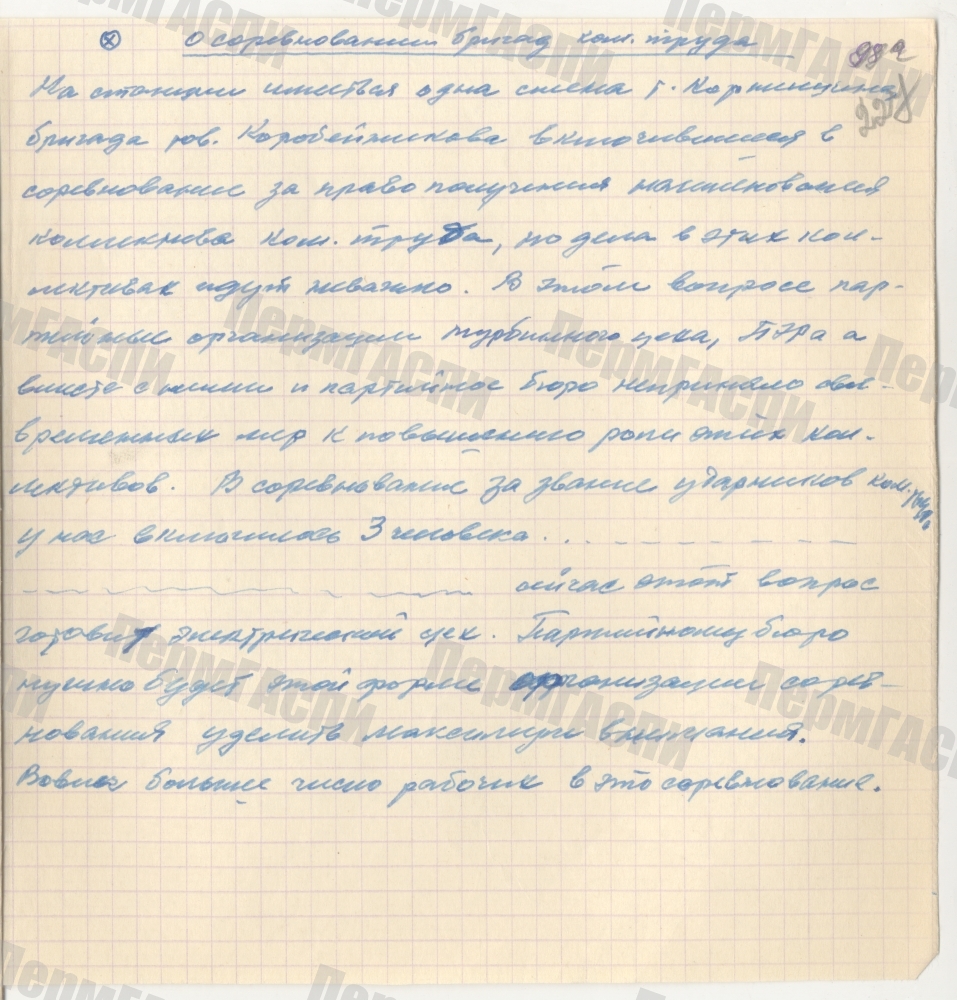 ⊗ О соревновании бригад ком. труда
98а
227
На станции иметься одна смена т.
бригада тов. Коробейникова включившиеся в
соревнование за право получения наименования
коллектива ком. труда, но дела в этих кол-
лективах идут неважно. В этом вопросе пар-
тийные организации турбинного цеха, ППРа а
вместе с ними и партийное бюро неприняло сво-
временных мер к повышению роли этих кол-
лективов. В соревнование за звание ударников ком. труда
у нас включилось 3 человека...
сейчас этот вопрос
готовит электрический цех. Партийному бюро
нужно будет этой форме организации сорев-
нования уделить максимум внимания.
Вовлеч большее число рабочих в это соревнование.
ПермГАСПИ